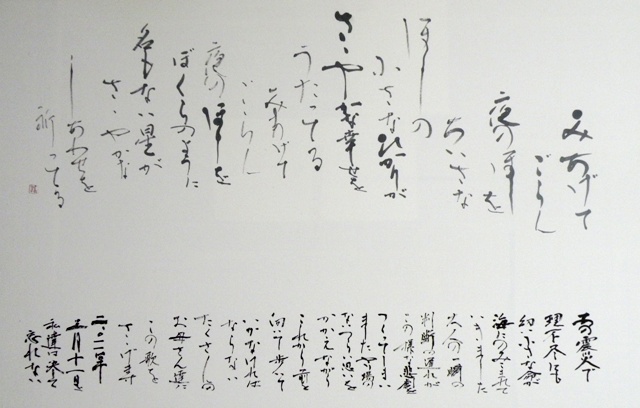 みあげて
ごらん
夜のほしを
ちいさな
ほしの
小さなひかりが
さゝやかな幸せを
うたってる
みあげて
ごらん
夜のほしを
ぼくらのように
名もない星が
さゝやかな
しあわせを
祈ってる
この震災で
理不尽にも
幼い小さな命が
海にのみ込まれて
いきました
大人の一瞬の
判断の遅れが
この様な悲劇を
つくってしまい
ました やり場の
ないつらい思いを
かかえながら
これから前を
向いて歩いて
いかなければ
ならない
たくさんの
お母さん達に
この歌を
さゝげます
二〇一一年
三月十一日を
私達は決して
忘れない